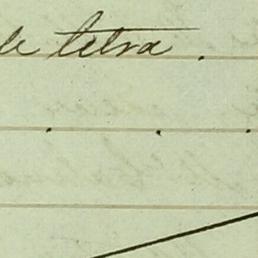 de letra .
. . .